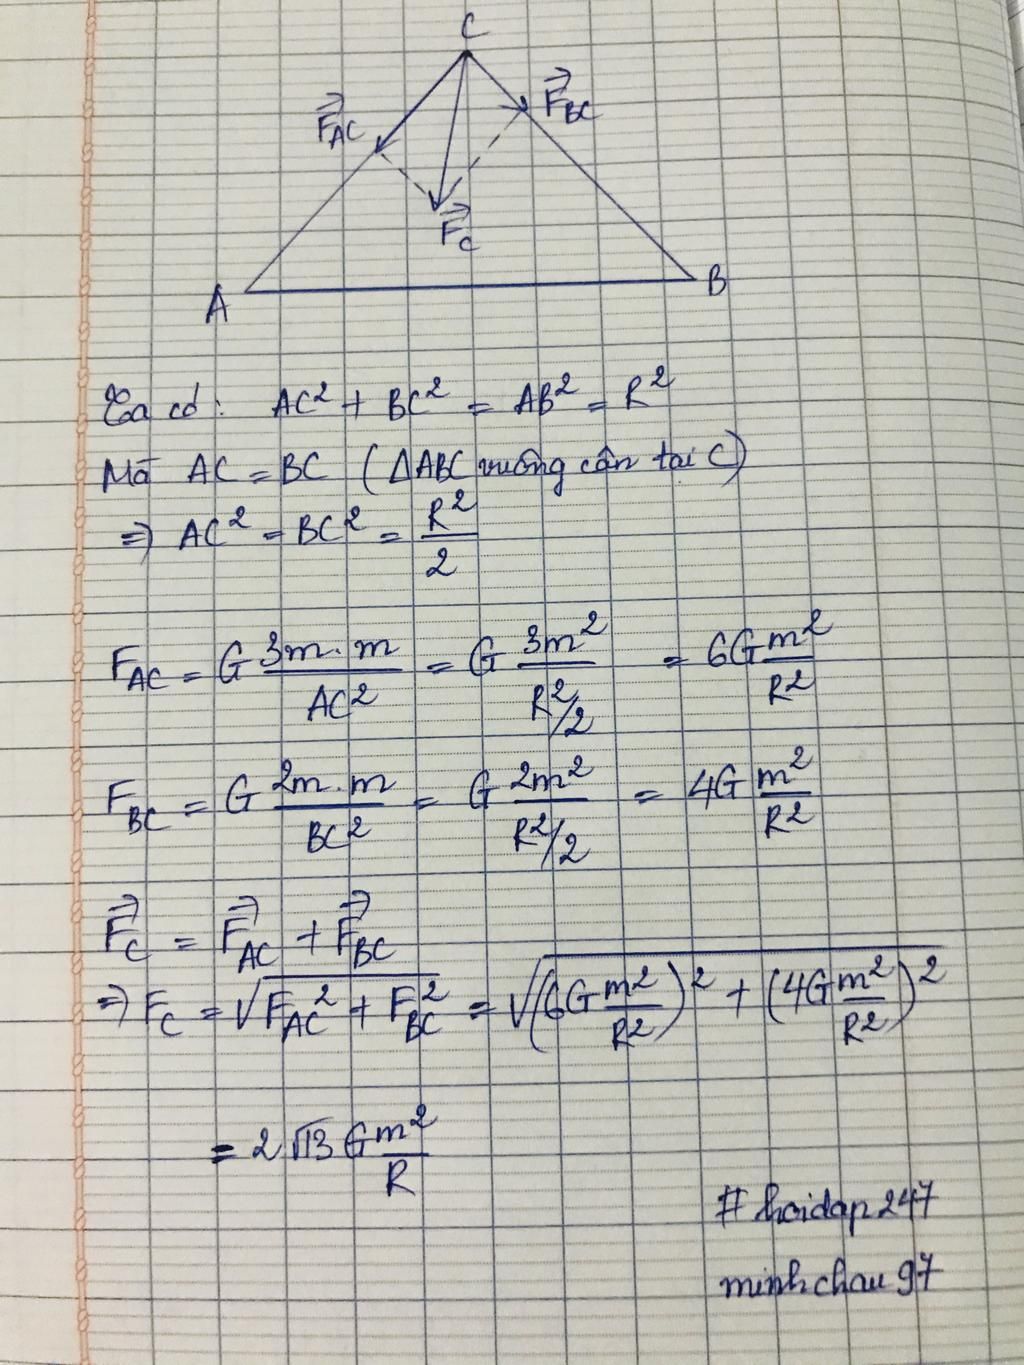 C
F⃗_AC
F⃗_BC
F⃗_C
A
B
Ta có: AC² + BC² = AB² = R²
Mà AC = BC (ΔABC vuông cân tại C)
⇒ AC² = BC² = R²/2
F_AC = G (3m.m)/AC² = G 3m²/(R²/2) = 6G m²/R²
F_BC = G (2m.m)/BC² = G 2m²/(R²/2) = 4G m²/R²
F⃗_C = F⃗_AC + F⃗_BC
⇒ F_C = √(F_AC² + F_BC²) = √((6G m²/R²)² + (4G m²/R²)²)
= 2√13 G m²/R
# hoidap247
minhchau97